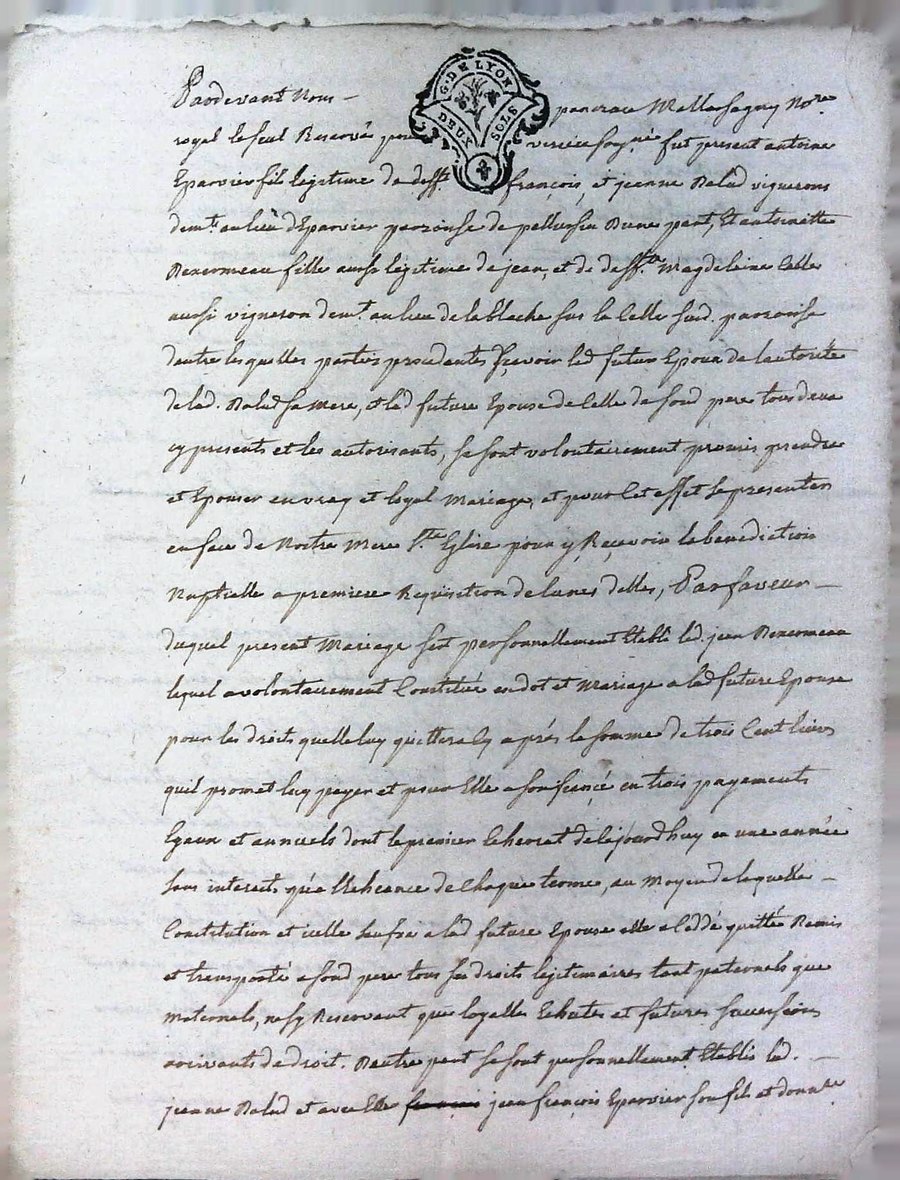 G. DE LYON
DEUX SOLS
Pardevant Nous pancrace Mellesagny No.re
royal le seul Reservé pour fut present antoine
Eparvier fils legitime de deff.t françois et jeanne Balud vignerons
dem.t au lieu d'Eparvier paroisse de pellussin Dune part, Et antoinette
fille aussi legitime de jean, et de deff.te Magdeleine Celle
aussi vigneron dem.t au lieu de la blache sus la Celle susd. paroisse
dautre lesquelles parties procedantes sçavoir led futur Epoux de lautorité
de lad. Balud sa Mere, et lad future Epouse de Celle de sond pere tous deux
cy presents et les autorisants, se sont volontairement promis prendre
et Epouser en vray et loyal Mariage, et pour Cet effet se presenter
en face de Nostre Mere S.te Eglise pour y Recevoir la benediction
Nuptielle a premiere Requisition de lunes delles, Par faveur
duquel present Mariage sest personnellement Etabli led. jean
lequel a volontairement Constitué en dot et Mariage a lad future Epouse
pour les droits quelle luy quittera Cy après la somme de trois Cent livres
quil promet luy payer et pour Elle a son fiancé en trois payements
Egaux et annuels dont le premier Echerrat de cejourdhuy en une année
sans interets qu'a Echeance de Chaque terme, au Moyen de laquelle
Constitution et icelle sauve a lad future Epouse elle a Ceddé quitté Remis
et transporté a sond pere tous ses droits legitimaires tant paternels que
Maternels, ne sy Reservant que loyalles Echutes et futures successions
avenants de droit. Dautre part se sont personnellement Etablis lad.
jeanne Balud et avec Elle jean françois Eparvier son fils et donat.re